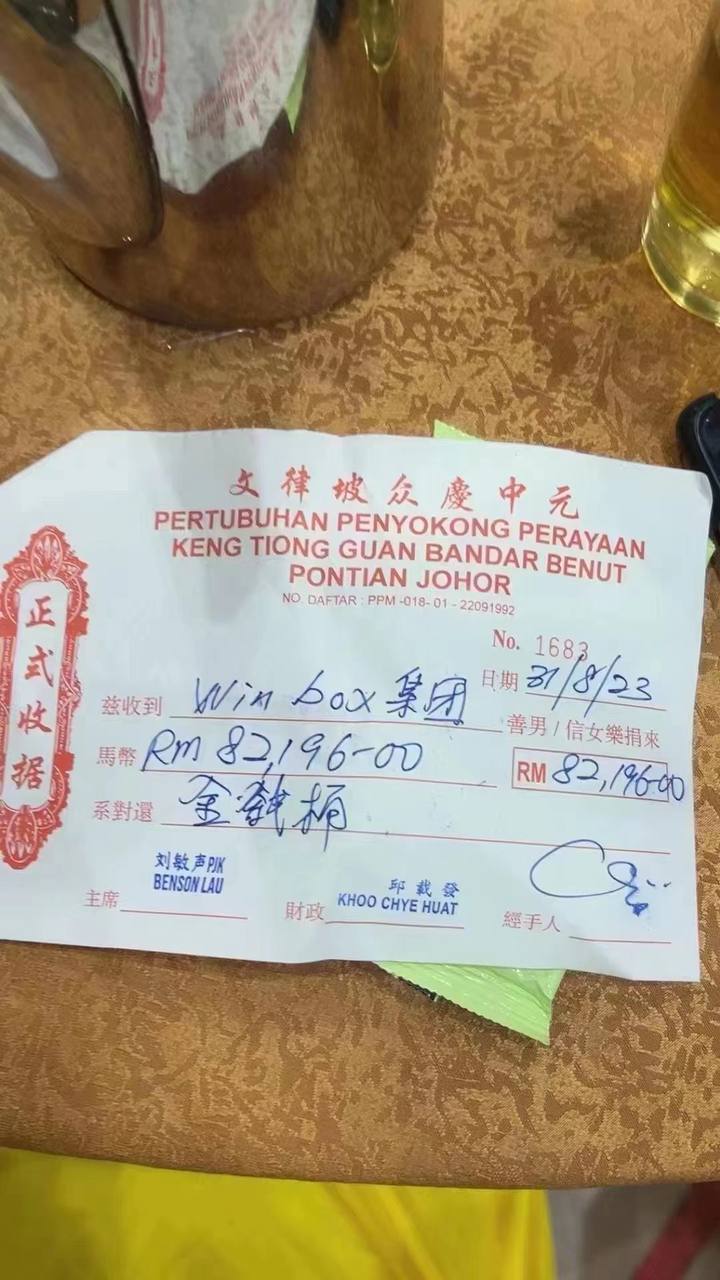 文律坡众慶中元
PERTUBUHAN PENYOKONG PERAYAAN
KENG TIONG GUAN BANDAR BENUT
PONTIAN JOHOR
NO. DAFTAR : PPM -018- 01 - 22091992
正式收据
No. 1683
日期 31/8/23
兹收到 Win box 集团 善男 / 信女樂捐來
馬幣 RM 82,196-00 RM 82,196-00
系對還 金 桶
刘敏声PJK
BENSON LAU
邱栽發
KHOO CHYE HUAT
主席 財政 經手人